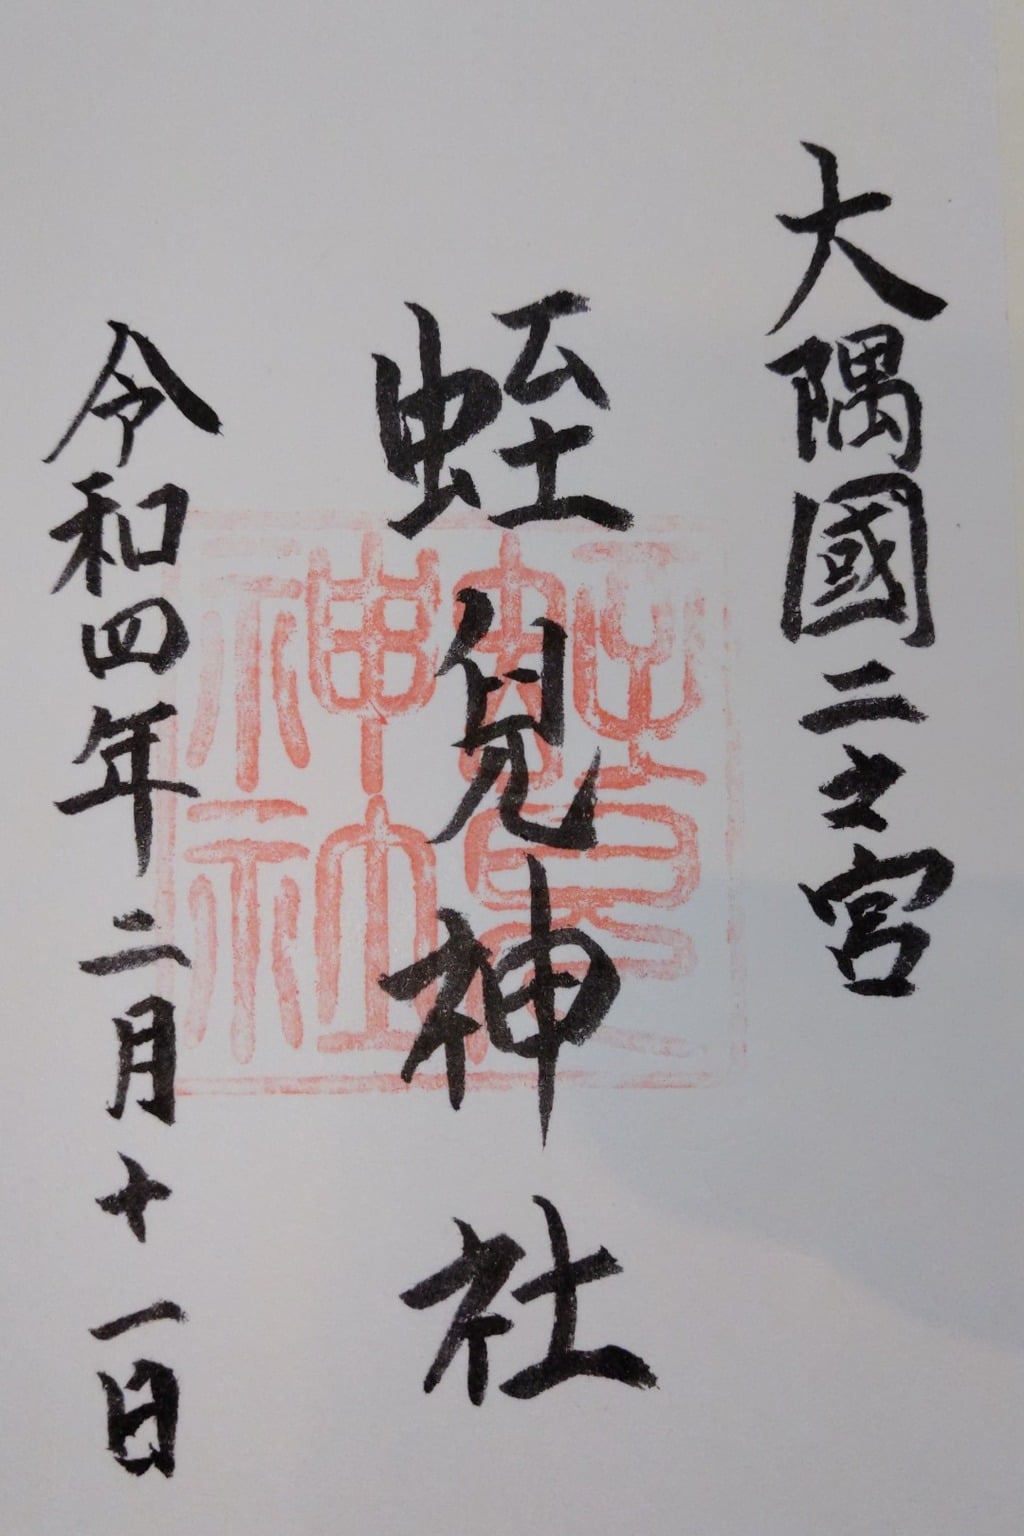 大隅國二之宮
蛭兒神社
蛭兒神社
令和四年二月十一日